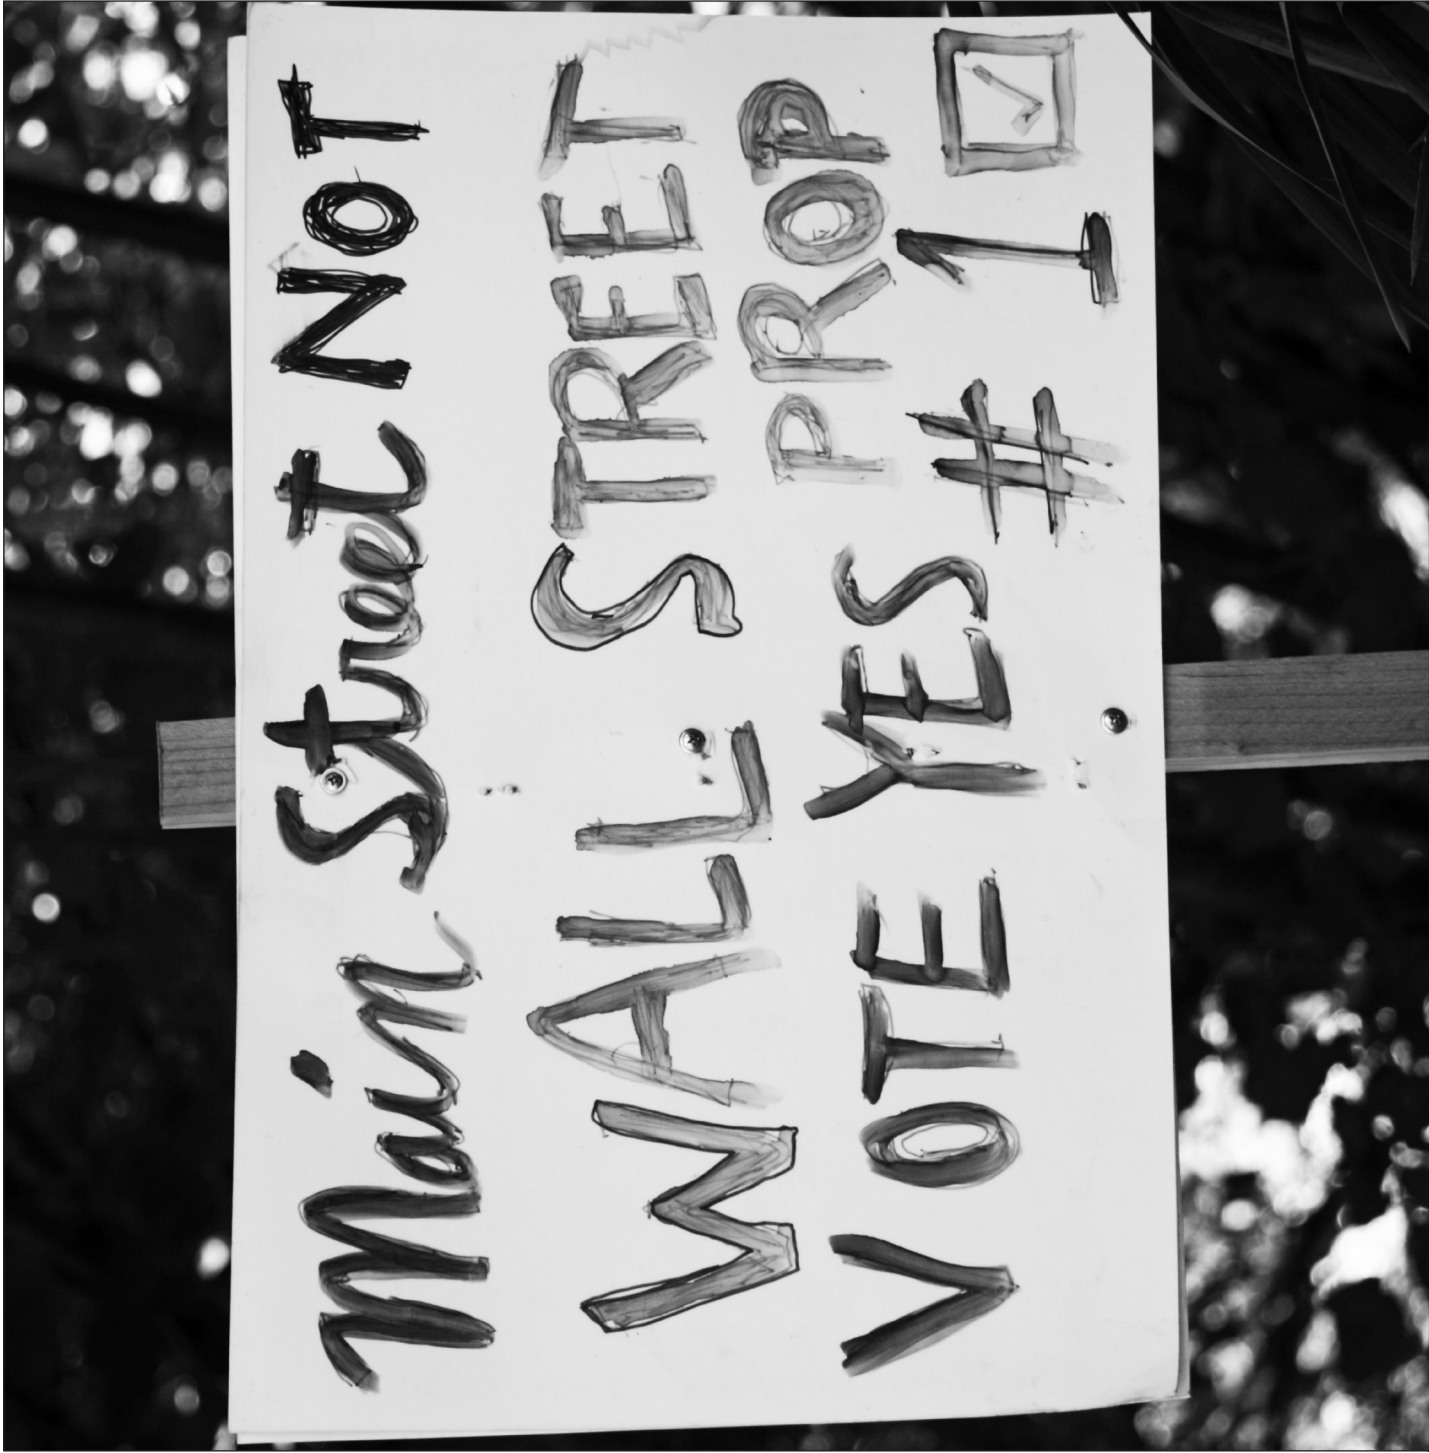 Main Street NOT
WALL STREET
VOTE YES PROP
#1